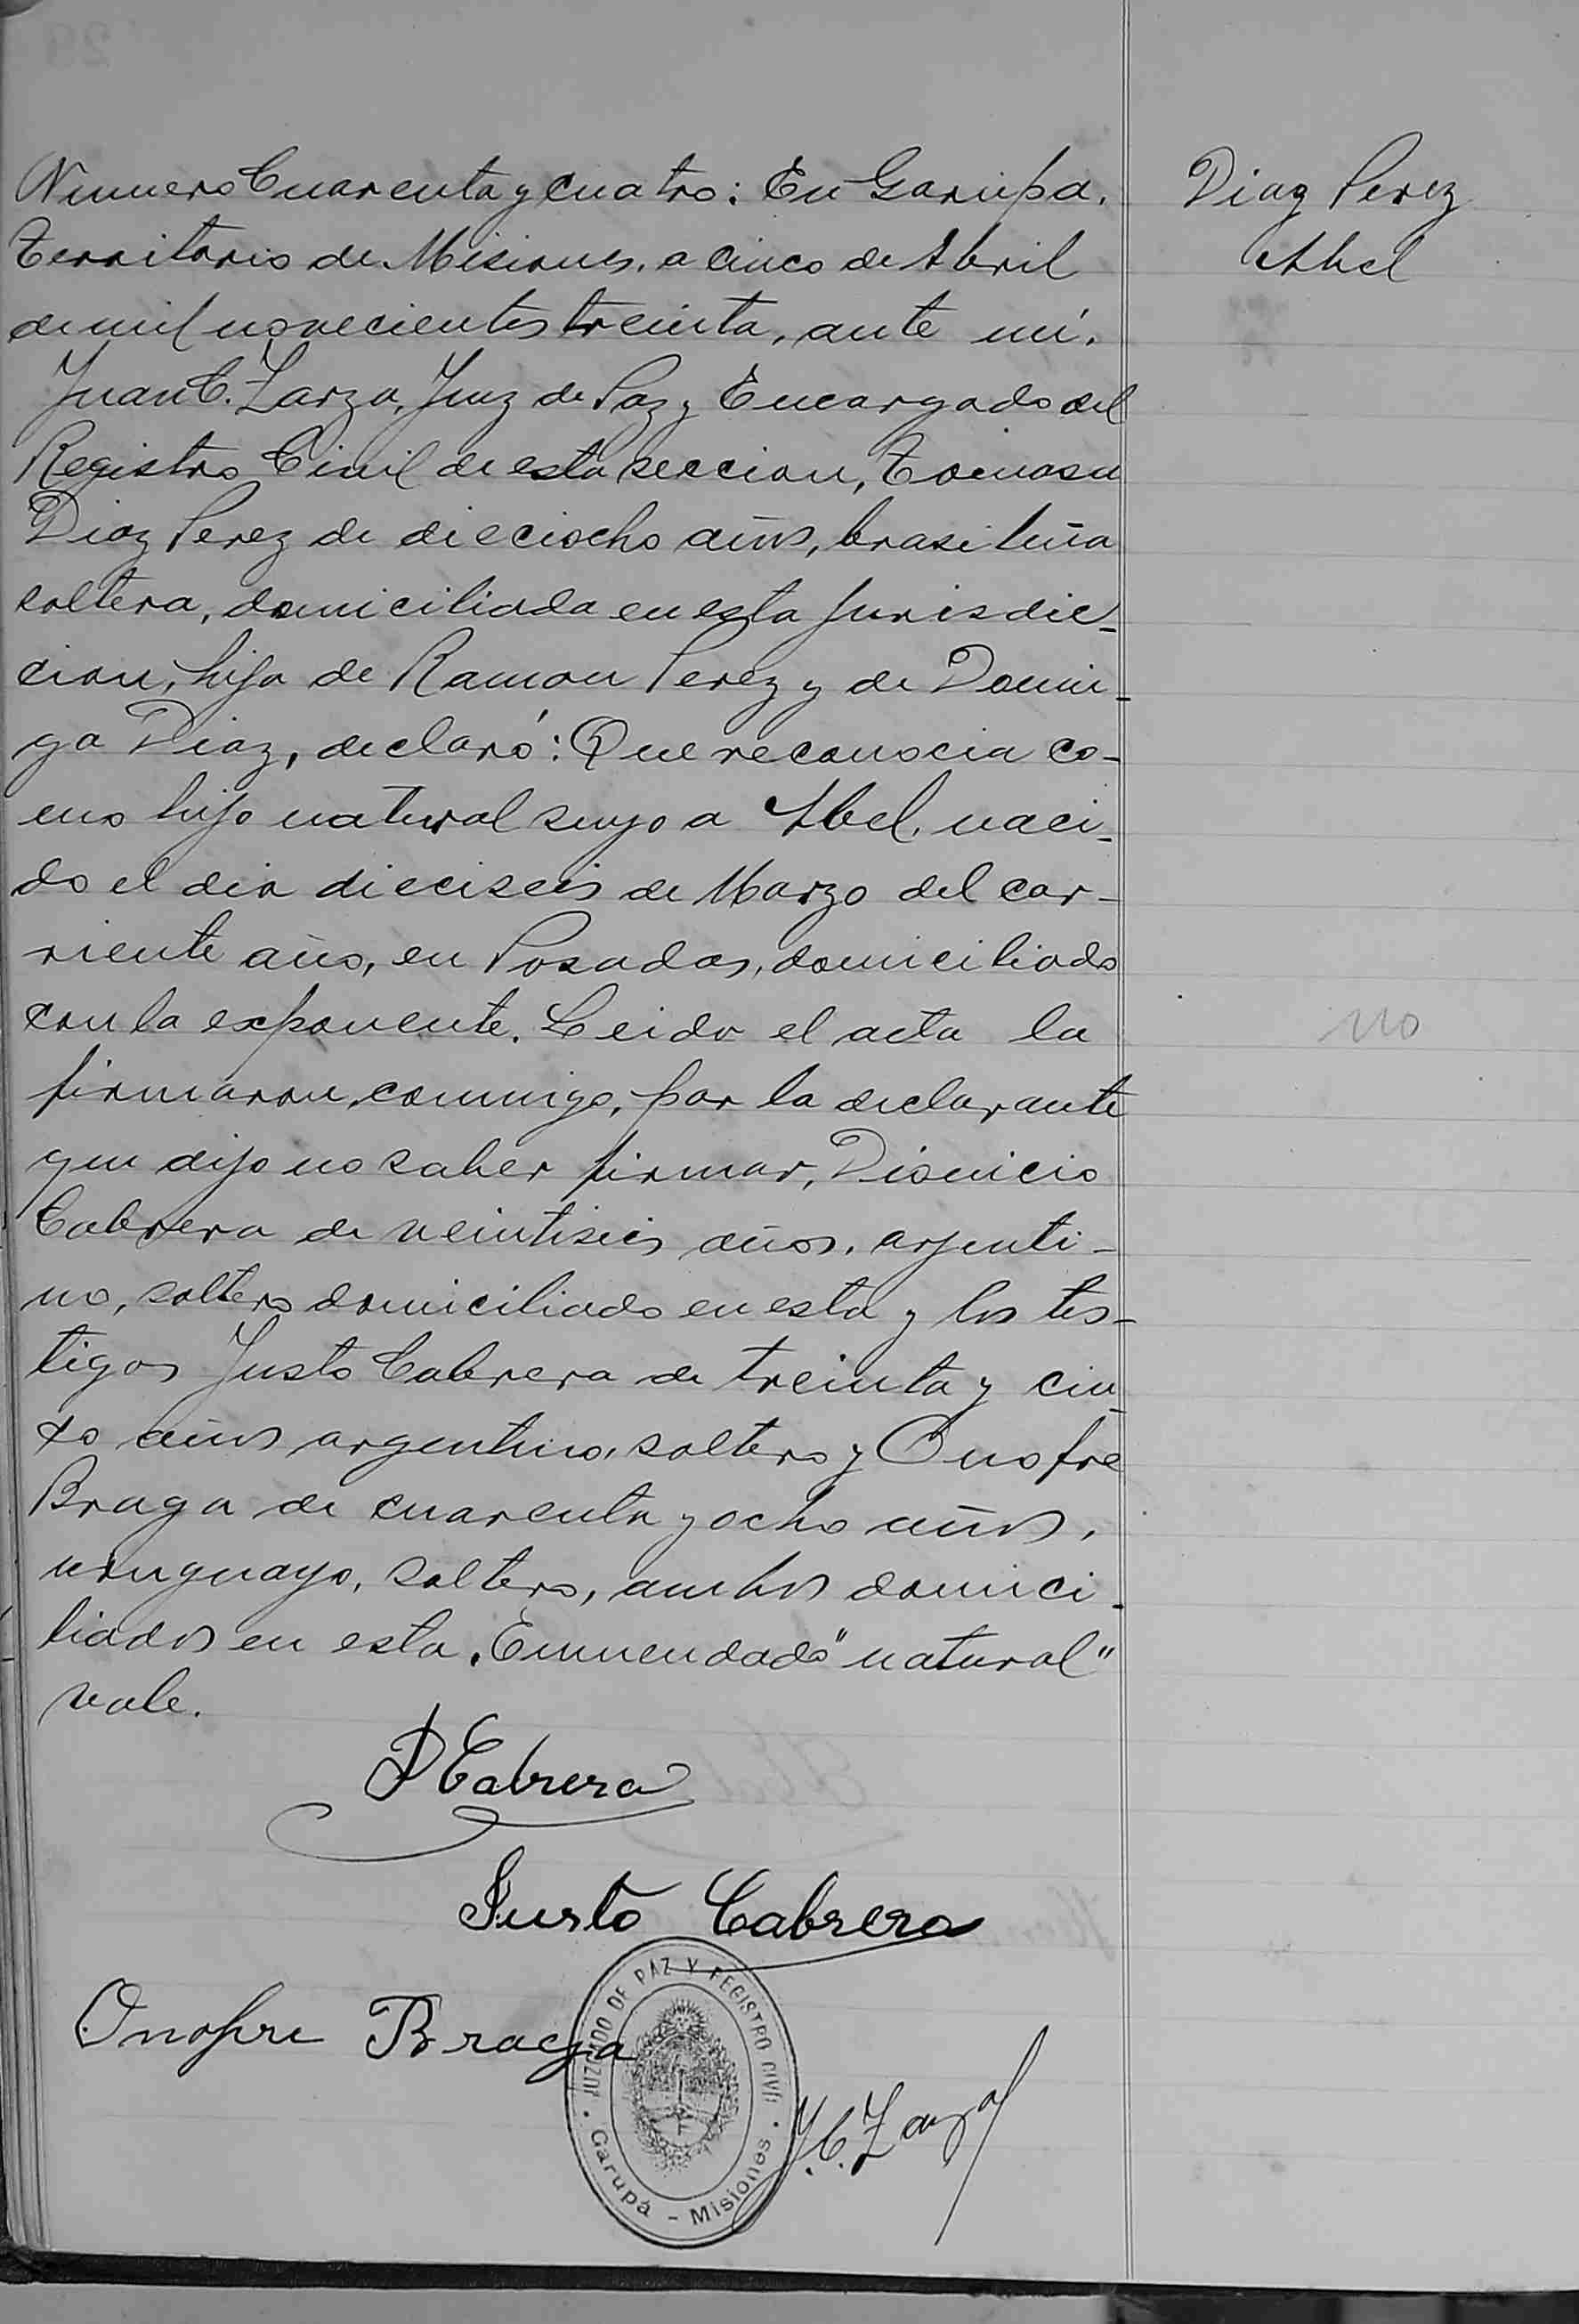 Numero Cuarenta y cuatro: En Garupa,
Territorio de Misiones, a cinco de Abril
de mil novecientos treinta, ante mí,
Juan C. Zarza, Juez de Paz y Encargado del
Registro Civil de esta seccion, Tomasa
Diaz Perez de dieciocho años, brasileña
soltera, domiciliada en esta Jurisdic-
cion, hija de Ramon Perez y de Domin-
ga Diaz, declaró: Que reconocia co-
mo hijo natural suyo a Abel, naci-
do el dia dieciseis de Marzo del cor-
riente año, en Posadas, domiciliado
con la exponente. Leida el acta la
firmaron, conmigo, por la declarante
que dijo no saber firmar, Dionicio
Cabrera de veintiseis años, argenti-
no, soltero domiciliado en esta y los tes-
tigos Justo Cabrera de treinta y cin-
co años argentino, soltero y Onofre
Braga de cuarenta y ocho años,
uruguayo, soltero, ambos domici-
liados en esta. Enmendado "natural"
vale.
D Cabrera
Justo Cabrera
Onofre Braga
J. C. Zarza
JUZGADO DE PAZ Y REGISTRO CIVIL
Garupá - Misiones
Diaz Perez
Abel
no